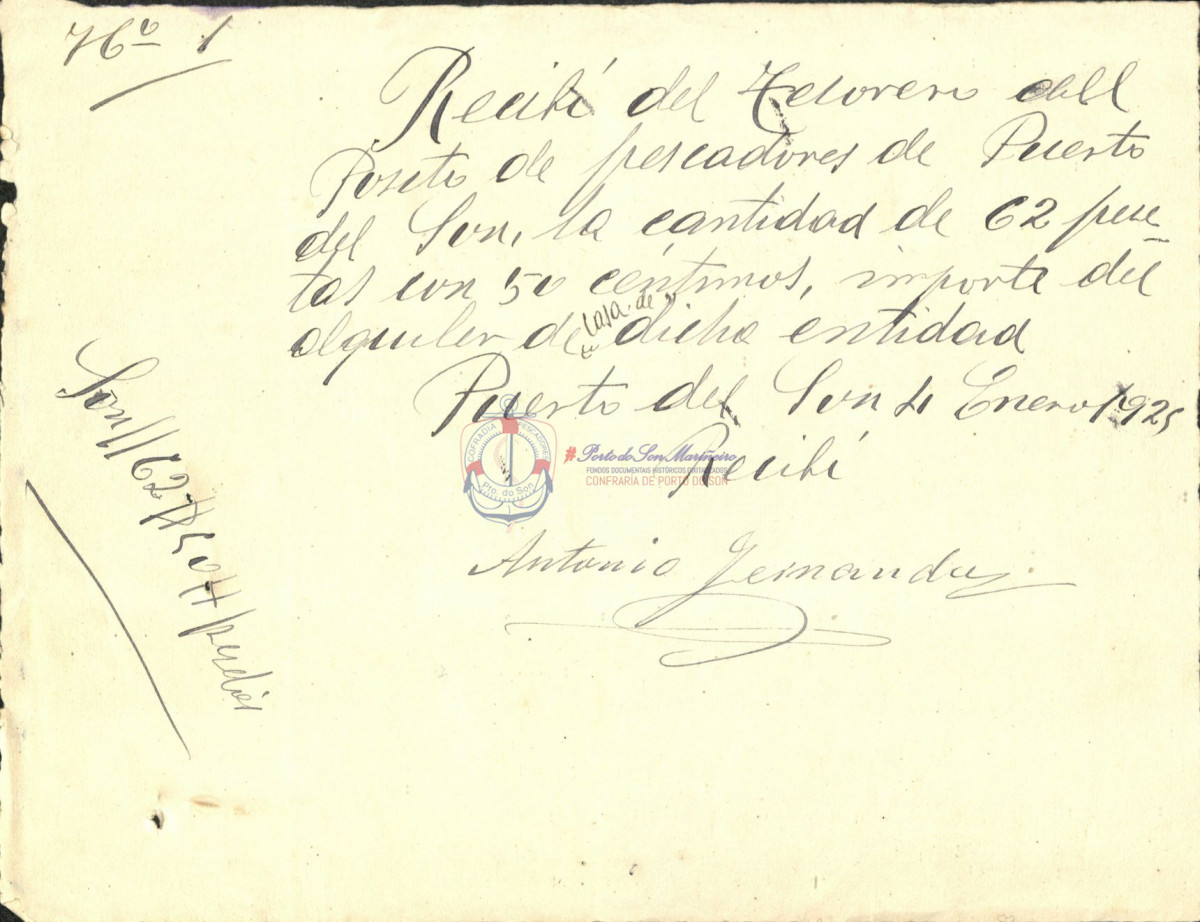 Nº 1
Recibí del Tesorero del
Posito de pescadores de Puerto
del Son, la cantidad de 62 pese
tas con 50 céntimos, importe del
alquiler de casa de dicha entidad
Puerto del Son 4 Enero 1925
Recibí
Antonio Fernandez
Son//62#50#
COFRADIA PESCADORES
Pto. do Son
#PortodoSonMariñeiro
FONDOS DOCUMENTAIS HISTÓRICOS DIXITALIZADOS
CONFRARÍA DE PORTO DO SON